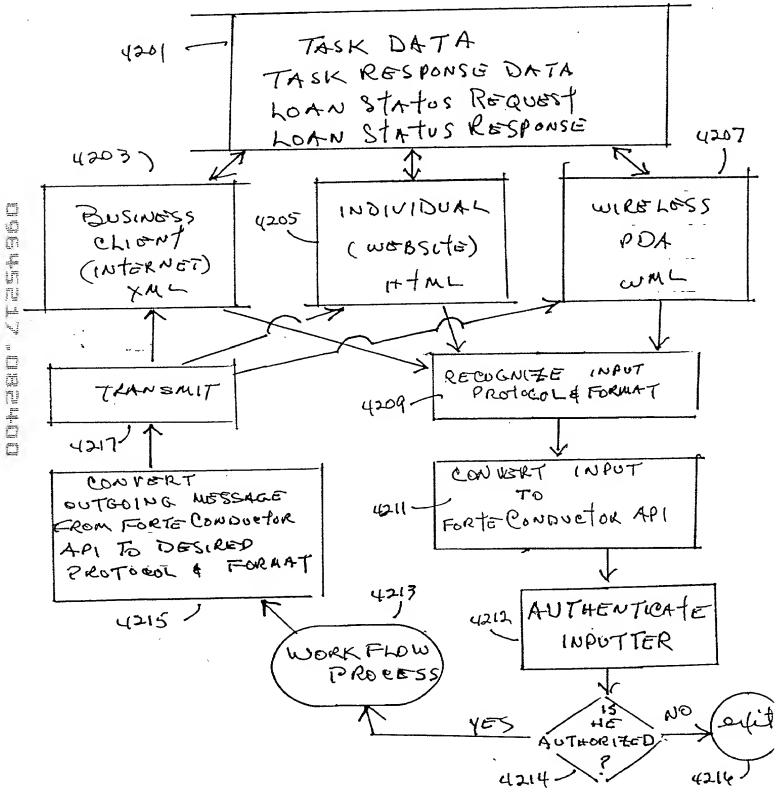 4201
TASK DATA
TASK RESPONSE DATA
LOAN STATUS REQUEST
LOAN STATUS RESPONSE
4203
4207
BUSINESS
CLIENT
(INTERNET)
XML
4205
INDIVIDUAL
(WEBSITE)
HTML
WIRELESS
PDA
WML
09645217.082400
TRANSMIT
4217
RECOGNIZE INPUT
PROTOCOL & FORMAT
4209
CONVERT
OUTGOING MESSAGE
FROM FORTE CONDUCTOR
API TO DESIRED
PROTOCOL & FORMAT
4215
CONVERT INPUT
TO
FORTE CONDUCTOR API
4211
4213
WORKFLOW
PROCESS
4212
AUTHENTICATE
INPUTTER
YES
IS
HE
AUTHORIZED
?
4214
NO
exit
4216